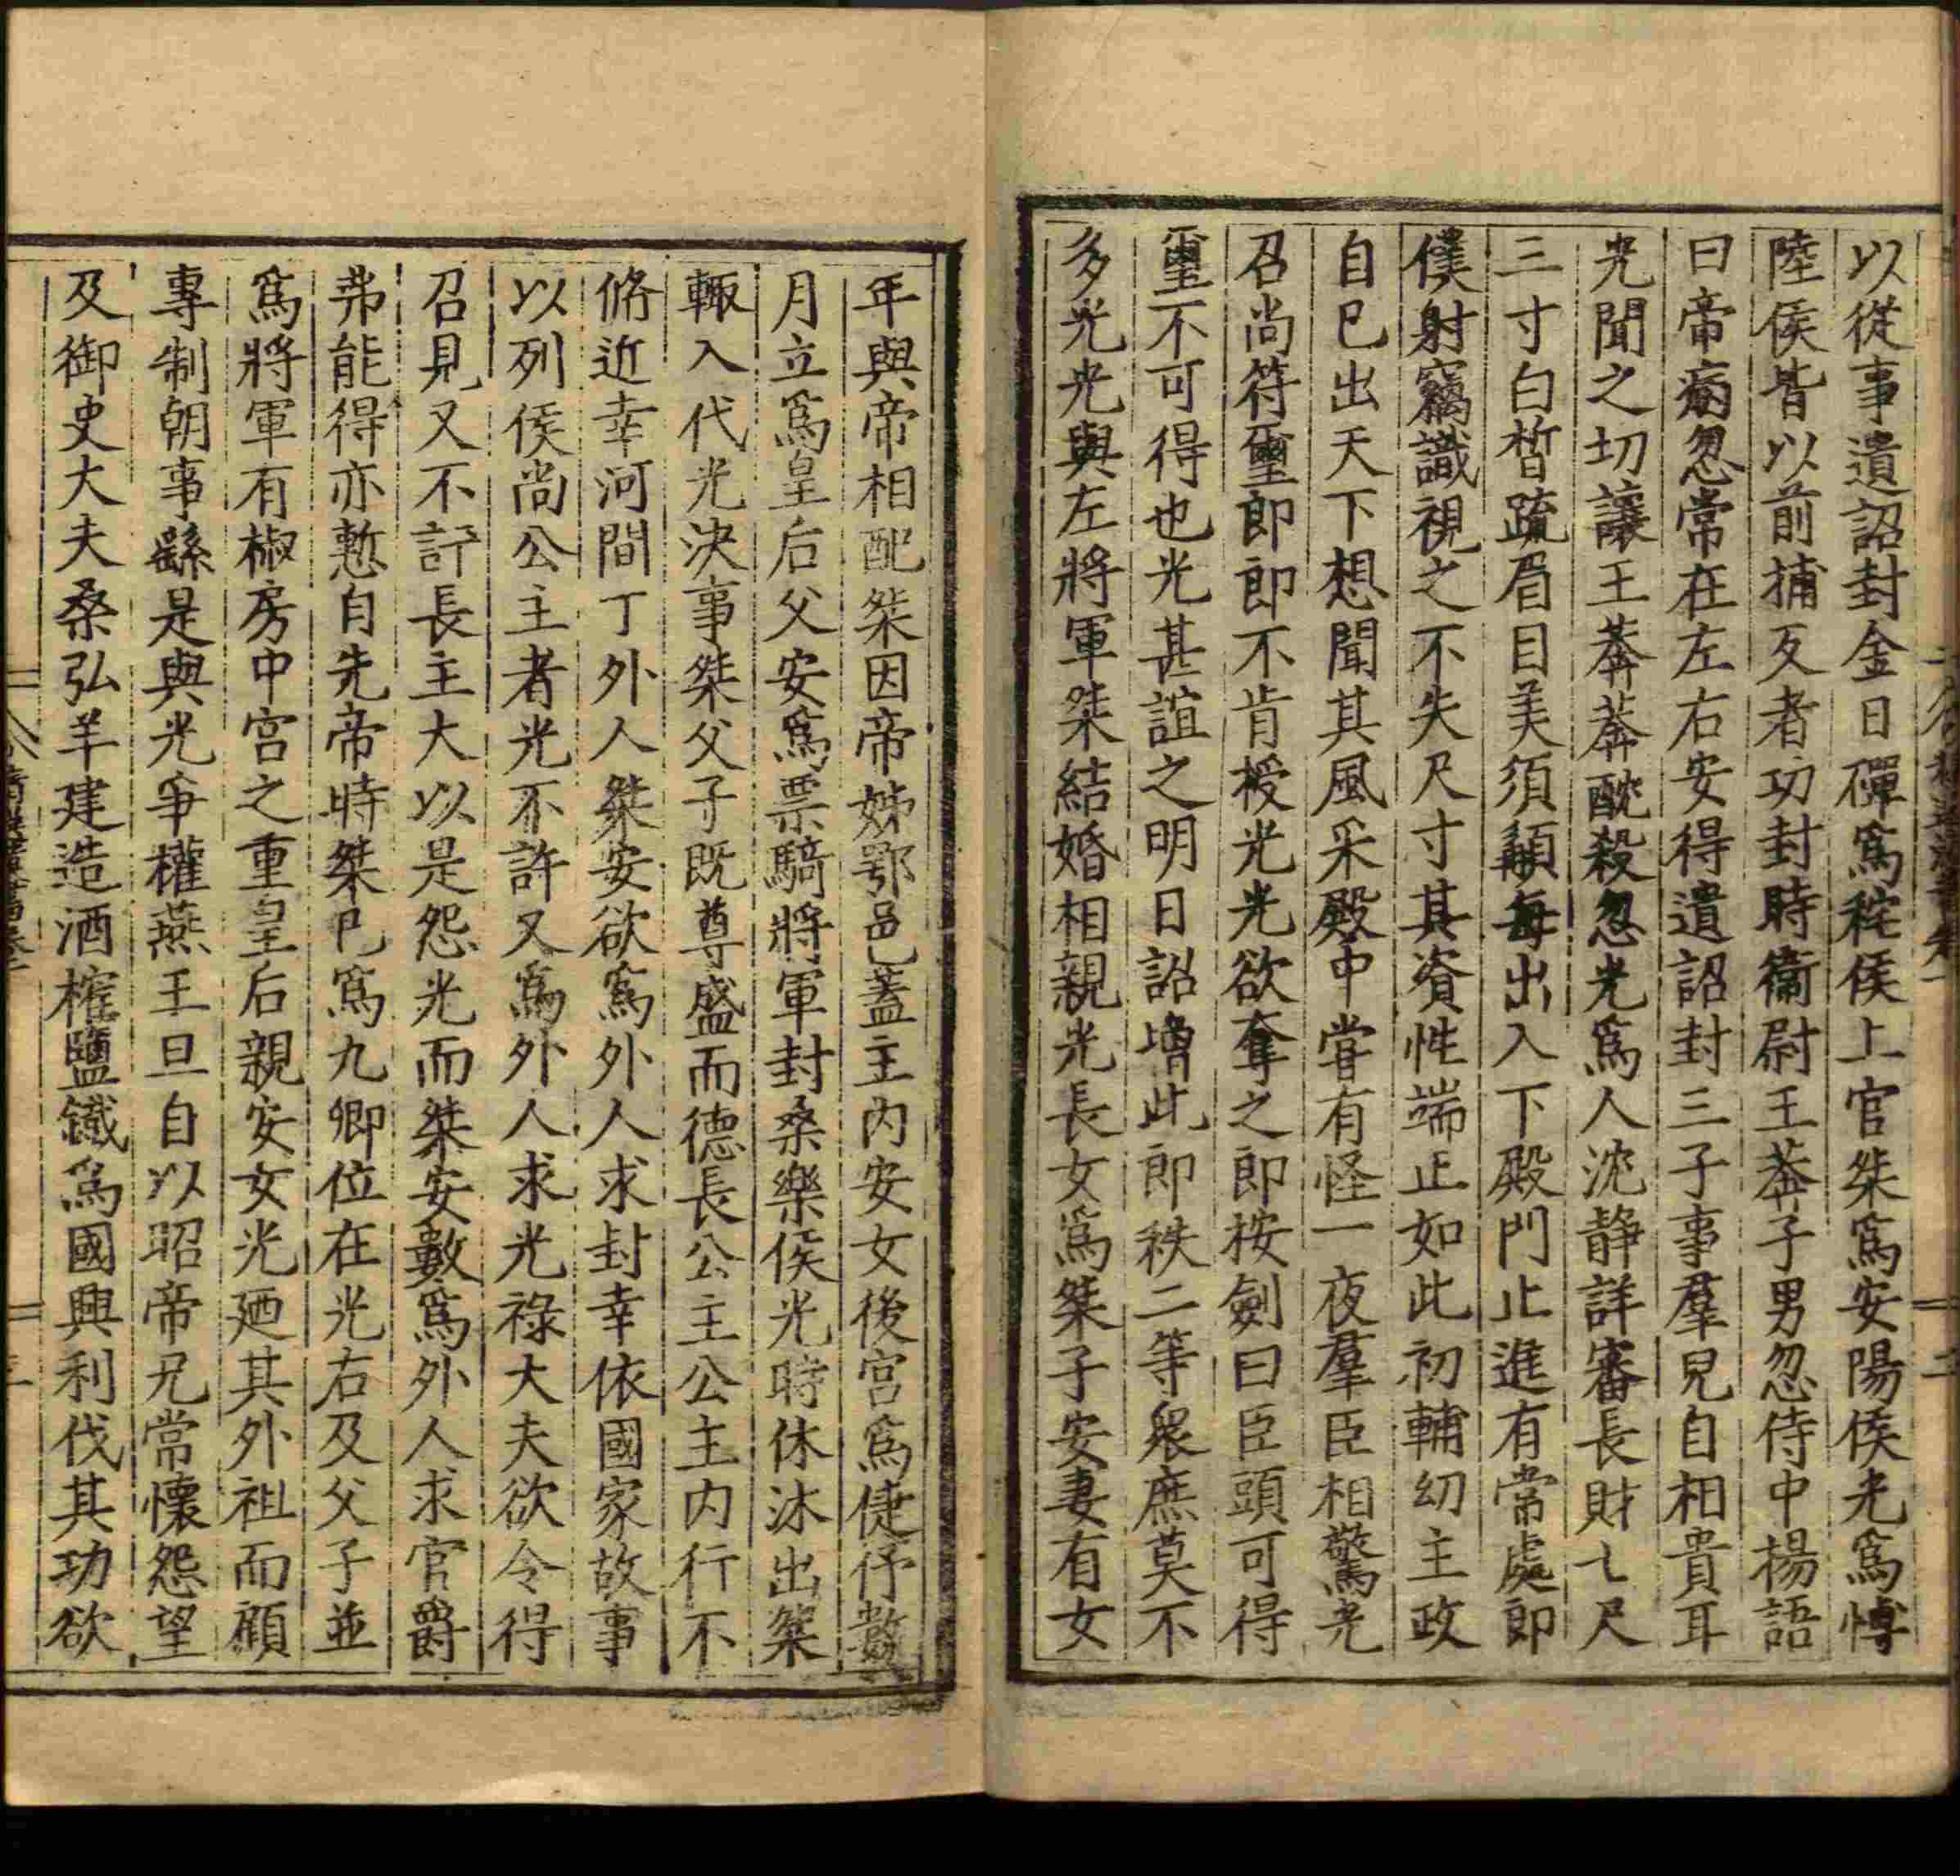 以從事遺詔封金日磾爲秺侯上官桀爲安陽侯光爲愽
陸侯皆以前捕反者功封時衞尉王莾子男忽侍中揚語
曰帝病忽常在左右安得遺詔封三子事羣兒自相貴耳
光聞之切讓王莾莾酖殺忽光爲人沈靜詳審長財七尺
三寸白皙疏眉目美須䫇每出入下殿門止進有常處郎
僕射竊識視之不失尺寸其資性端正如此初輔幼主政
自已出天下想聞其風采殿中甞有怪一夜羣臣相驚光
召尚符璽郎郎不肯授光光欲奪之郎按劍曰臣頭可得
璽不可得也光甚誼之明日詔增此郎秩二等衆庶莫不
多光光與左將軍桀結婚相親光長女爲桀子安妻有女
年與帝相配桀因帝姊鄂邑蓋主內安女後宮爲倢伃數
月立爲皇后父安爲票騎將軍封桑樂侯光時休沐出桀
輙入代光決事桀父子既尊盛而德長公主公主內行不
脩近幸河間丁外人桀安欲爲外人求封幸依國家故事
以列侯尚公主者光不許又爲外人求光祿大夫欲令得
召見又不許長主大以是怨光而桀安數爲外人求官爵
弗能得亦慙自先帝時桀已爲九卿位在光右及父子並
爲將軍有椒房中宮之重皇后親安女光廼其外祖而顧
專制朝事繇是與光爭權燕王旦自以昭帝兄常懷怨望
及御史大夫桑弘羊建造酒榷鹽鐵爲國興利伐其功欲